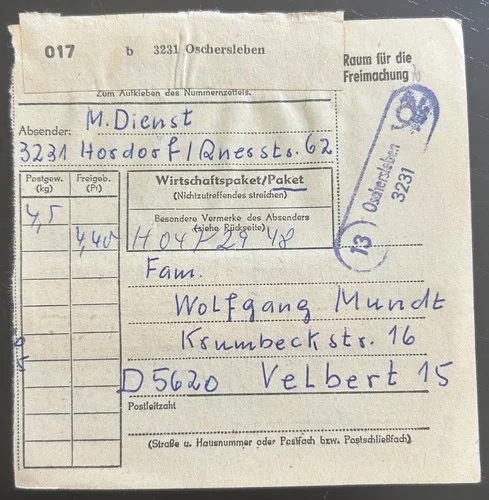 017 b 3231 Oschersleben
Raum für die
Freimachung
Zum Aufkleben des Nummernzettels.
Absender: M. Dienst
3231 Hordorf / Querstr. 62
Oschersleben
3231
13
Postgew.
(kg)
Freigeb.
(Pf)
Wirtschaftspaket/Paket
(Nichtzutreffendes streichen)
Besondere Vermerke des Absenders
(siehe Rückseite)
4,5
4,40
Fam.
Wolfgang Mundt
Krumbeckstr. 16
D 5620 Velbert 15
Postleitzahl
(Straße u. Hausnummer oder Postfach bzw. Postschließfach)